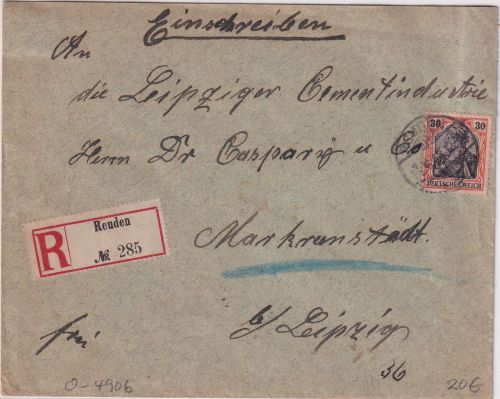 Einschreiben
An
die Leipziger Cementindustrie
Herrn Dr Caspary u Co
30 30
DEUTSCHES REICH
R
Reuden
№ 285
Markranstädt.
b/Leipzig
frei
36
0-4906
20€